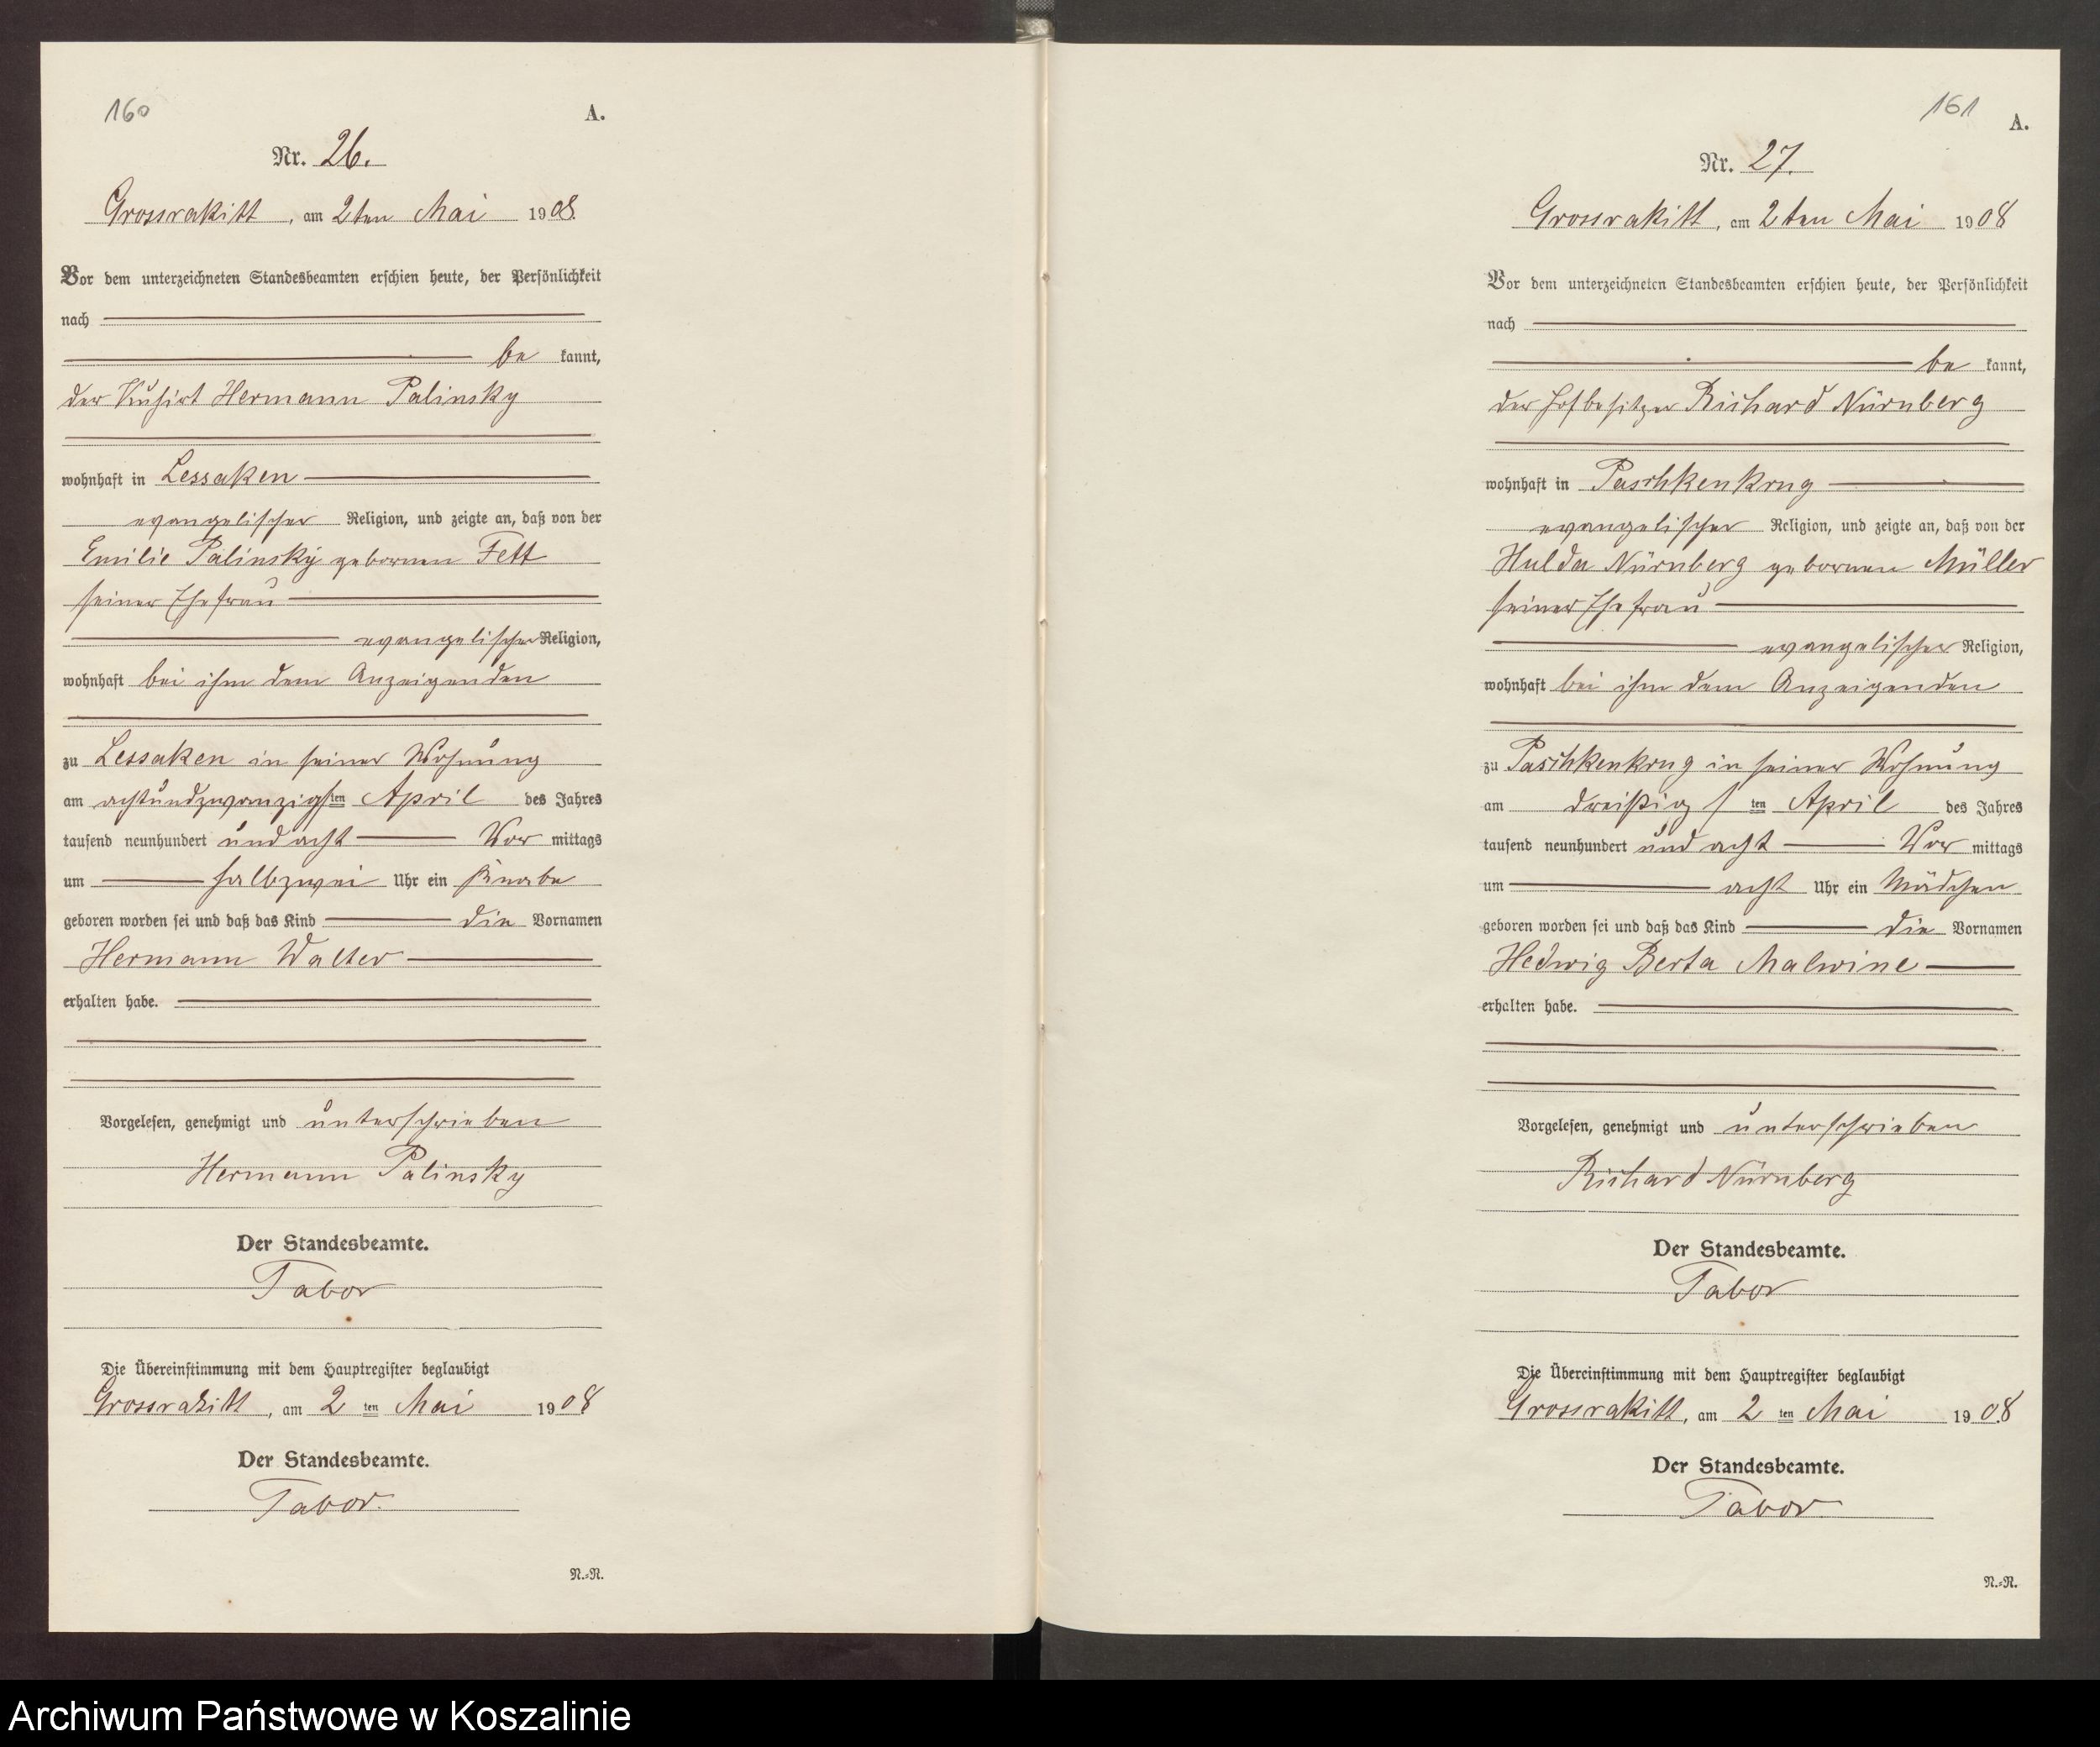 160
A.
Nr. 26.
Grossrakitt, am 2ten Mai 1908.
Vor dem unterzeichneten Standesbeamten erschien heute, der Persönlichkeit
nach
be kannt,
der Kuhirt Hermann Palinsky
wohnhaft in Lessaken
evangelischer Religion, und zeigte an, daß von der
Emilie Palinsky gebornen Fett
seiner Ehefrau
evangelischer Religion,
wohnhaft bei ihm dem Anzeigenden
zu Lessaken in seiner Wohnung
am achtundzwanzigsten April des Jahres
tausend neunhundert und acht Vor mittags
um halbzwei Uhr ein Knabe
geboren worden sei und daß das Kind die Vornamen
Hermann Walter
erhalten habe.
Vorgelesen, genehmigt und unterschrieben
Hermann Palinsky
Der Standesbeamte.
Tabor
Die Übereinstimmung mit dem Hauptregister beglaubigt
Grossrakitt, am 2 ten Mai 1908
Der Standesbeamte.
Tabor.
N.=N.
161
A.
Nr. 27.
Grossrakitt, am 2ten Mai 1908
Vor dem unterzeichneten Standesbeamten erschien heute, der Persönlichkeit
nach
be kannt,
der Hofbesitzer Richard Nürnberg
wohnhaft in Paschkenkrug
evangelischer Religion, und zeigte an, daß von der
Hulda Nürnberg gebornen Müller
seiner Ehefrau
evangelischer Religion,
wohnhaft bei ihm dem Anzeigenden
zu Paschkenkrug in seiner Wohnung
am dreißigsten April des Jahres
tausend neunhundert und acht Vor mittags
um acht Uhr ein Mädchen
geboren worden sei und daß das Kind die Vornamen
Hedwig Berta Malwine
erhalten habe.
Vorgelesen, genehmigt und unterschrieben
Richard Nürnberg
Der Standesbeamte.
Tabor
Die Übereinstimmung mit dem Hauptregister beglaubigt
Grossrakitt, am 2 ten Mai 1908
Der Standesbeamte.
Tabor.
N.=N.
Archiwum Państwowe w Koszalinie